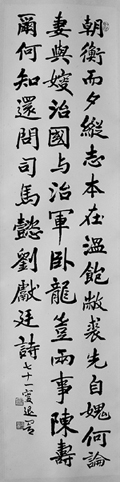 朝衡而夕縱志本在溫飽敝裘先自媿何論
妻與嫂治國与治軍臥龍豈兩事陳壽
爾何知還問司馬懿劉獻廷詩七十一叟